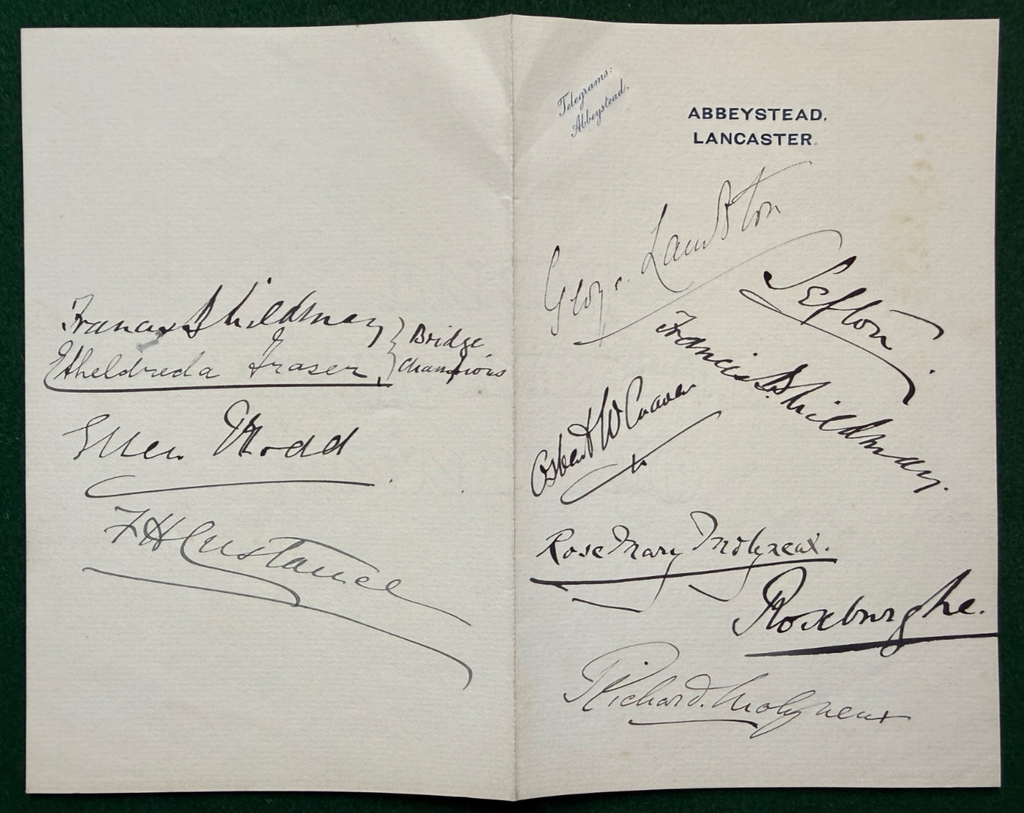 Francis B Mildmay } Bridge
Etheldreda Fraser, } Champions
Ellen Dodd
F H Custance
Telegrams:
Abbeystead.
ABBEYSTEAD,
LANCASTER.
George Lambton
Sefton.
Francis B. Mildmay.
Osbert W Craven
Rose Mary Molyneux.
Roxburghe.
Richard. Molyneux